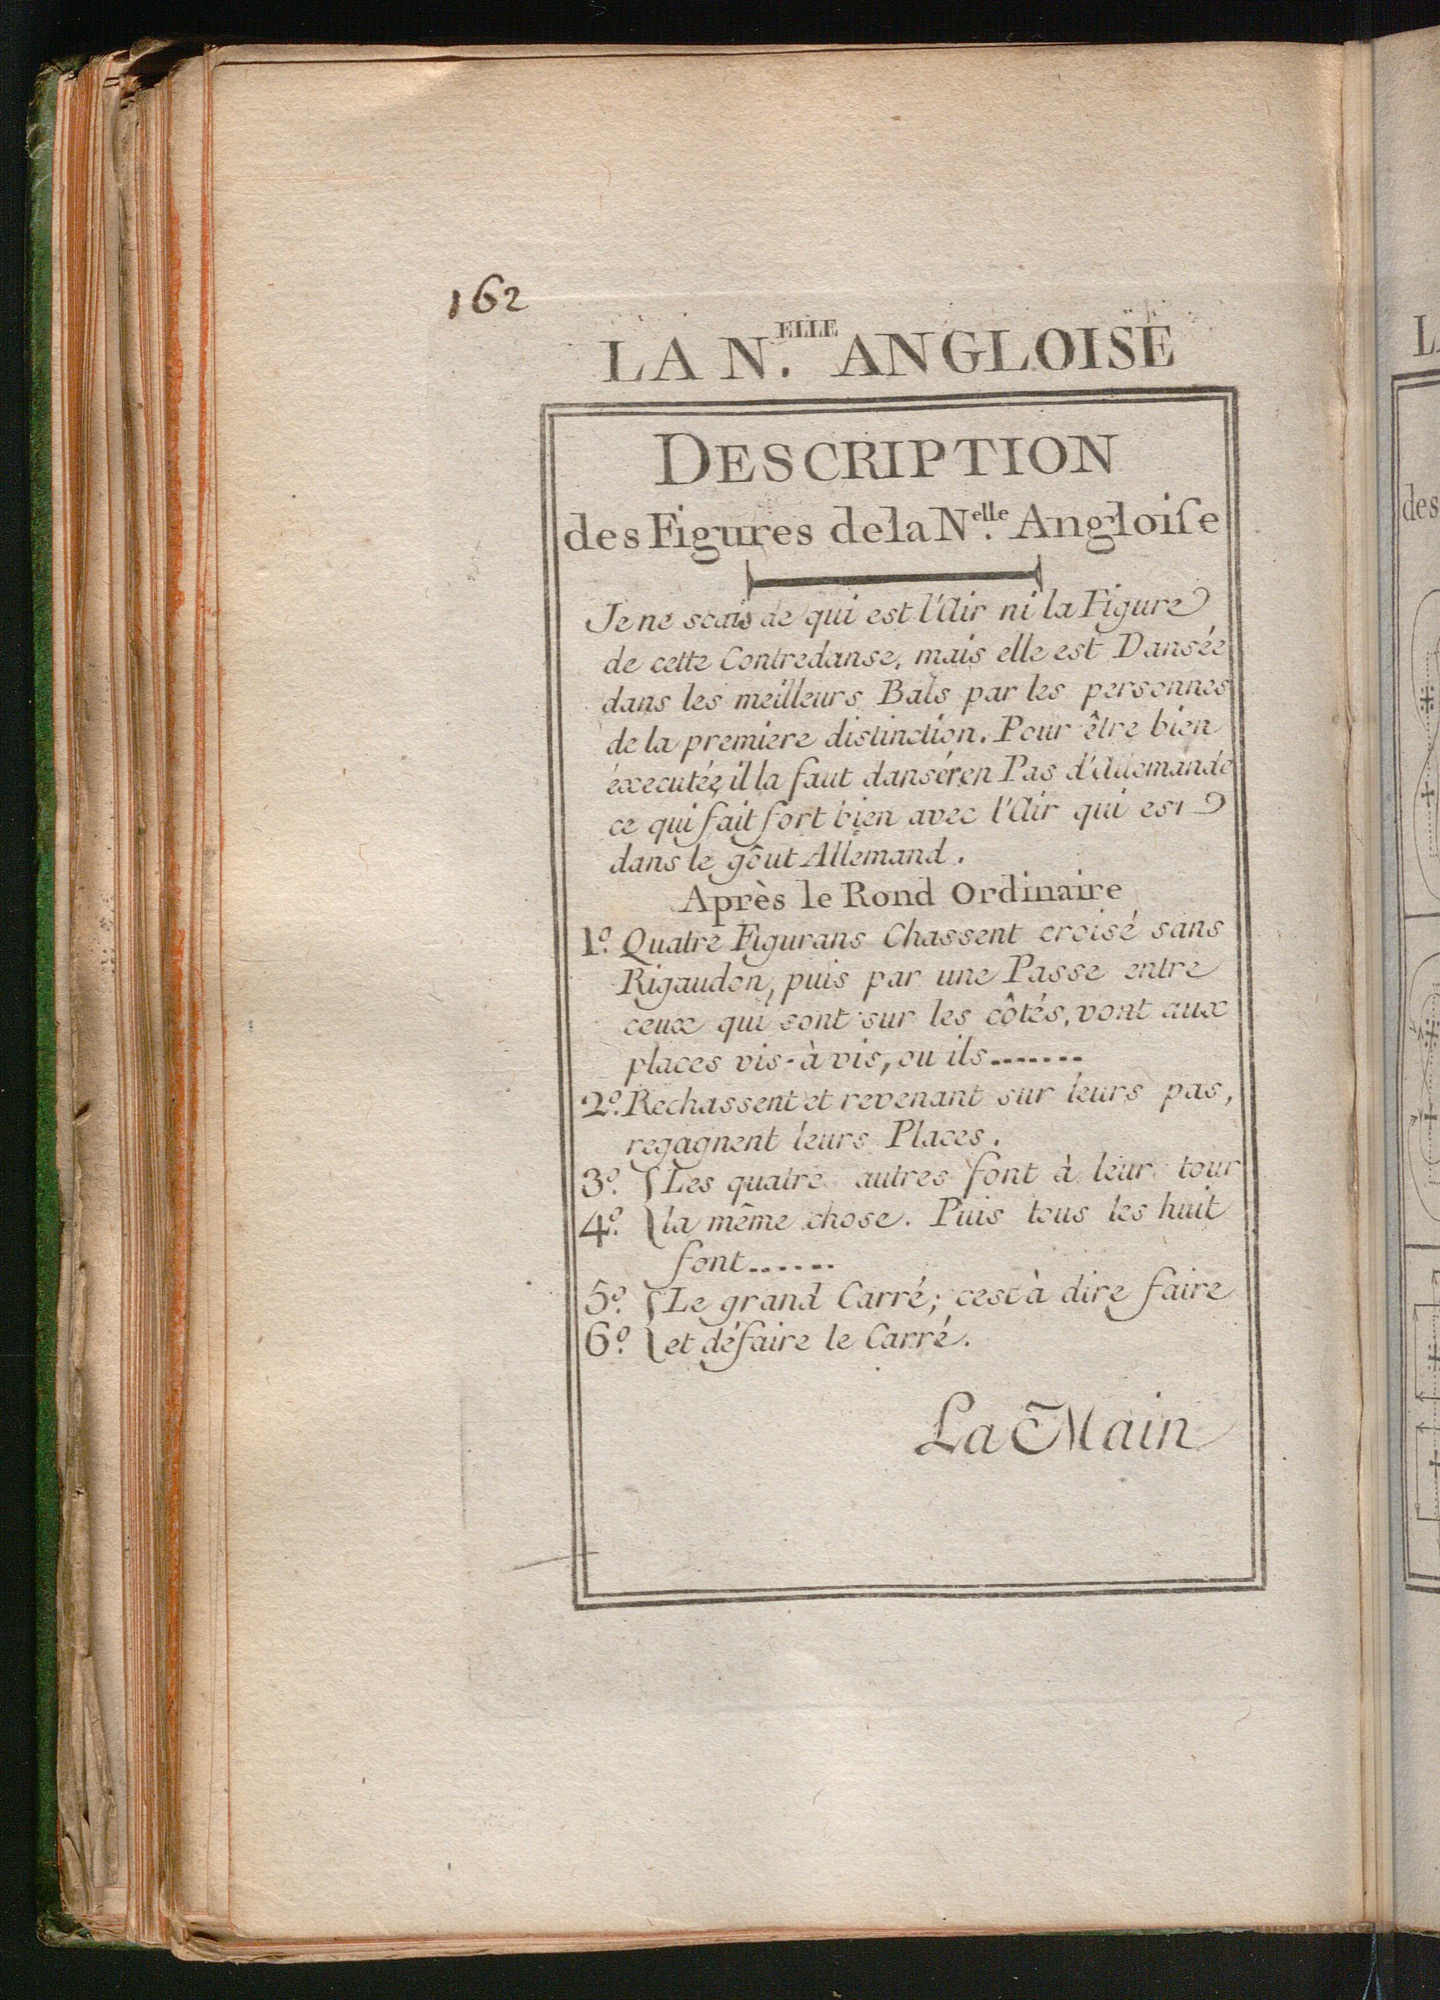 162
LA N.ELLE ANGLOISE
DESCRIPTION
des Figures de la N.elle Angloiſe
Je ne scais de qui est l'Air ni la Figure
de cette Contredanse, mais elle est Dansée
dans les meilleurs Bals par les personnes
de la premiere distinction. Pour être bien
éxecutée, il la faut danser en Pas d'Allemande
ce qui fait fort bien avec l'Air qui est
dans le goût Allemand.
Après le Rond Ordinaire
1º. Quatre Figurans Chassent croisé sans
Rigaudon, puis par une Passe entre
ceux qui sont sur les côtés, vont aux
places vis-à vis, ou ils.......
2º. Rechassent et revenant sur leurs pas,
regagnent leurs Places.
3º. { Les quatre autres font à leur tour
4º. { la même chose. Puis tous les huit
font......
5º. { Le grand Carré; cest à dire faire
6º. { et défaire le Carré.
La Main
L
des